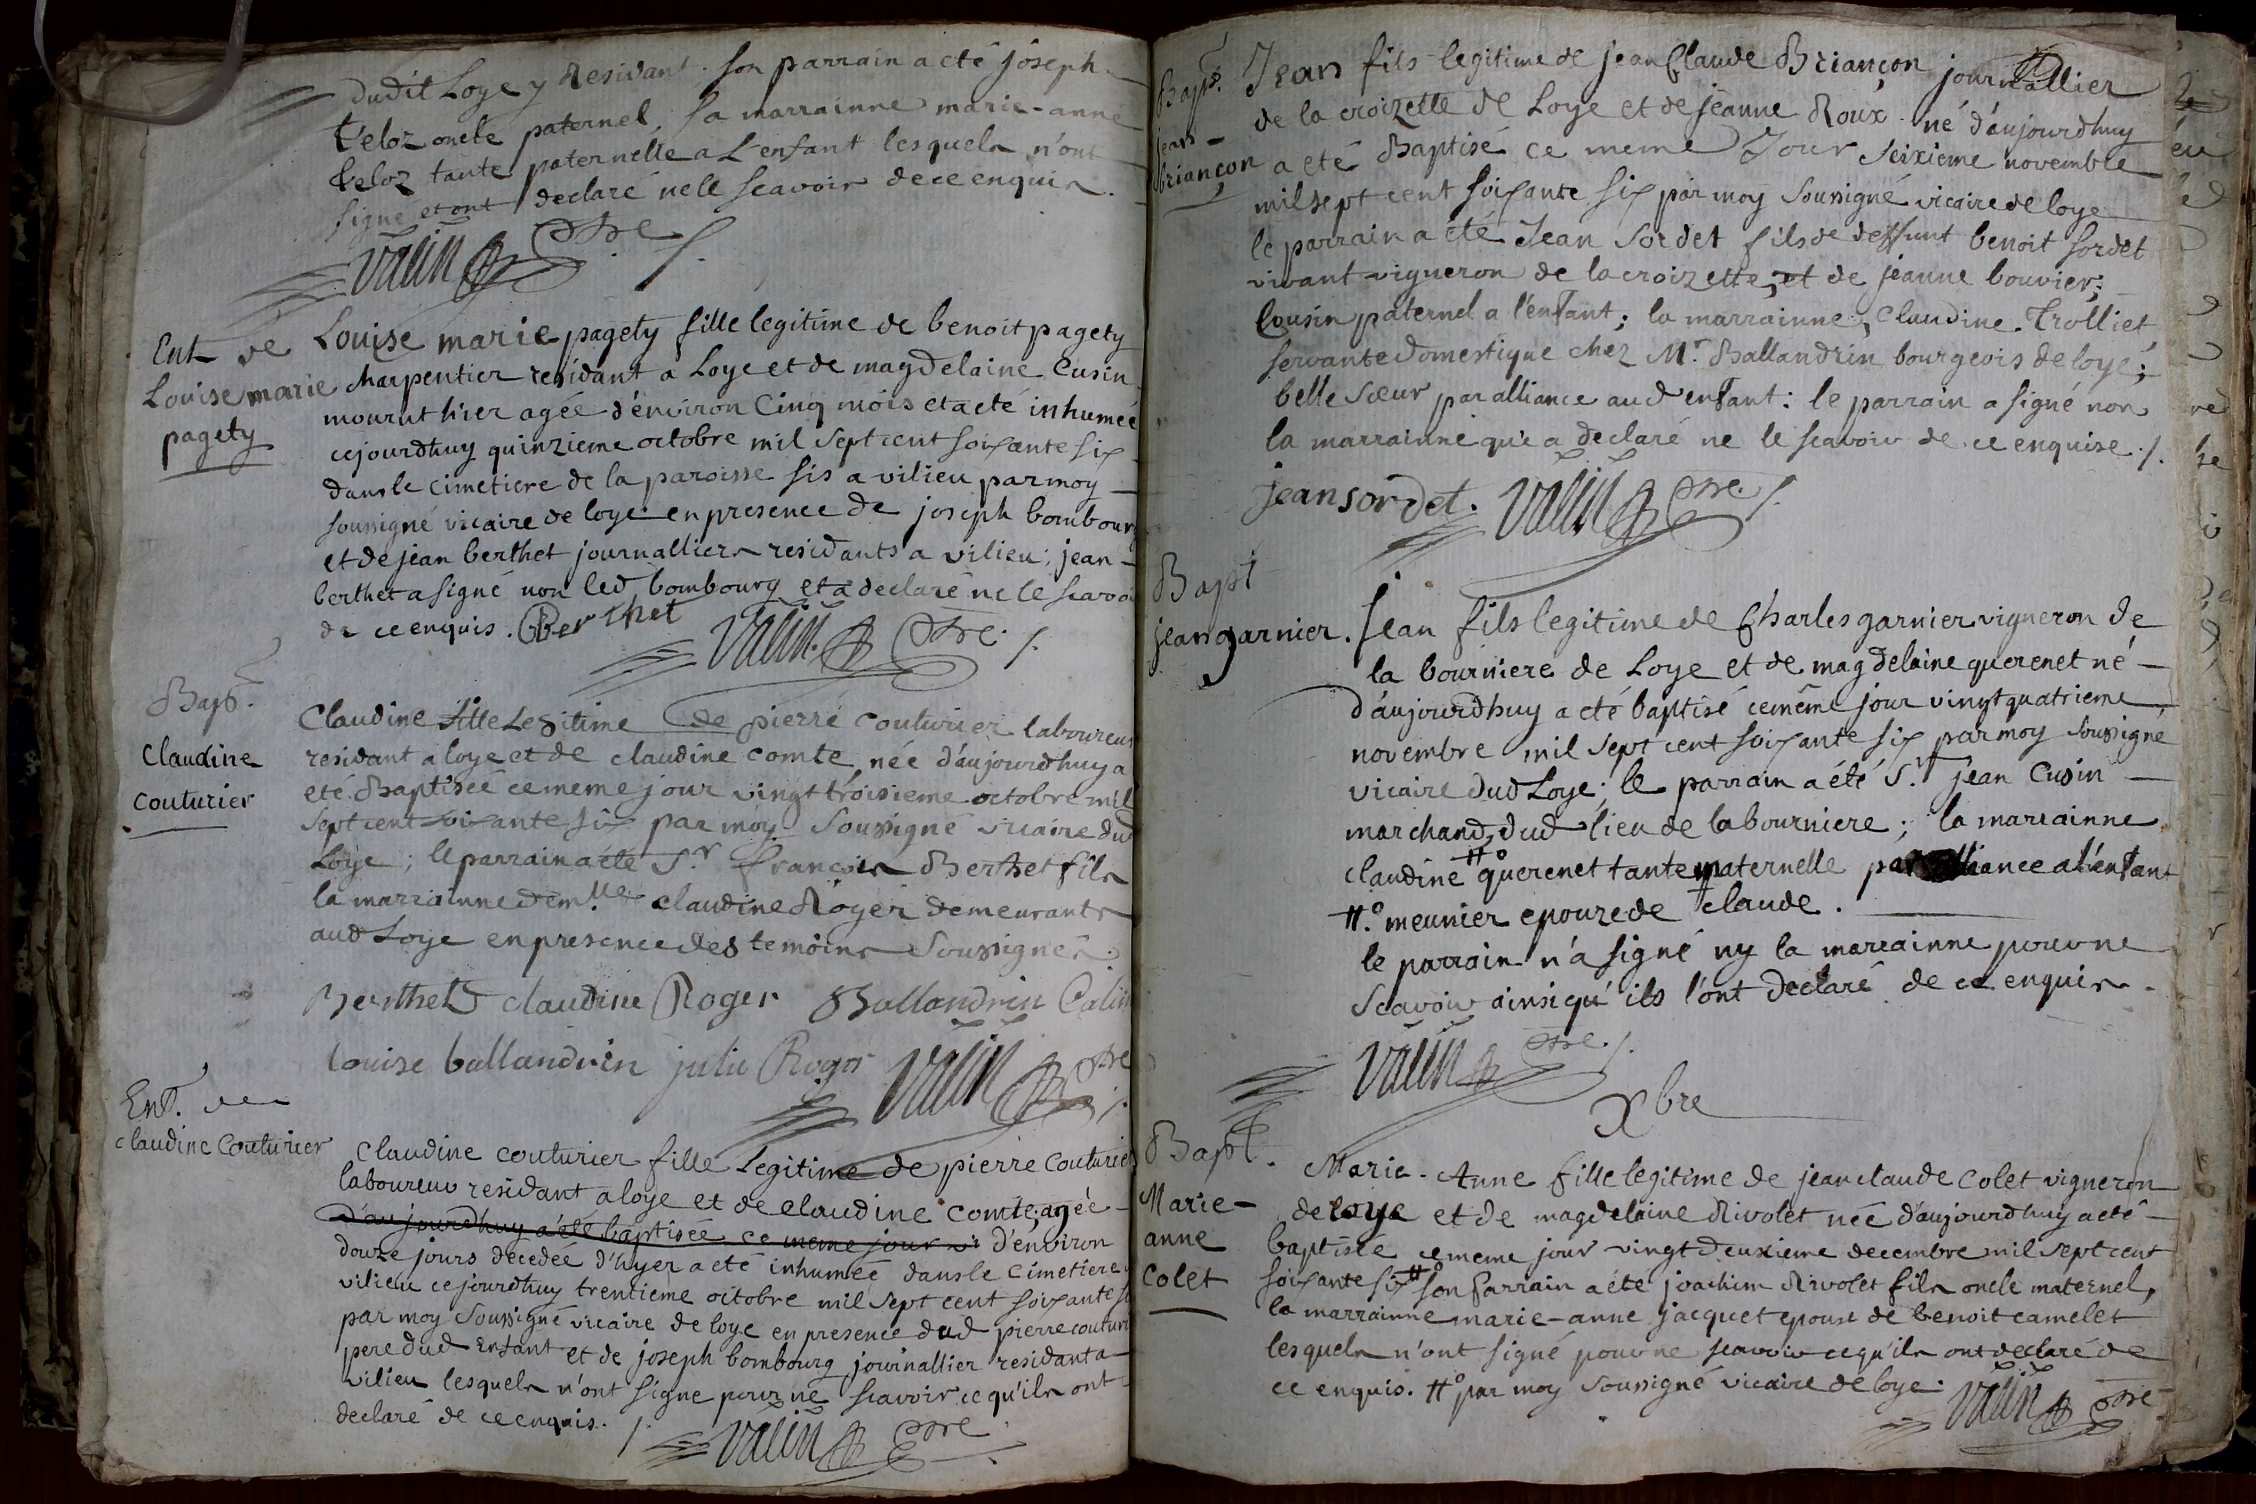 dudit Loye y Residant. son parrain a eté joseph
Veloz oncle paternel, sa marrainne marie-anne
Veloz tante paternelle a L'enfant lesquels n'ont
signé et ont declaré ne le scavoir de ce enquis.
Valin ptre
Ent de
Louise marie
pagety
Louise marie pagety fille legitime de benoit pagety
charpentier residant a Loye et de magdelaine Cusin
mourut hier agée d'environ Cinq mois et a eté inhumeé
cejourdhuy quinzieme octobre mil sept cent soixante six
dans le cimetiere de la paroisse sis a vilieu par moy
soussigné vicaire de loye en presence de joseph bombourg
et de jean berthet journalliers residants a vilieu; jean
berthet a signé non led bombourg et a declaré ne le scavoir
de ce enquis. Berthet Valin ptre
Bapt.
Claudine
couturier
Claudine fille Legitime de pierre couturier laboureur
residant a loye et de claudine comte née d'aujourdhuy a
eté Baptisée ce meme jour vingt troisieme octobre mil
sept cent soixante six par moy soussigné vicaire dud
Loye; le parrain a eté Sr. francois Berthet fils
la marrainne demlle claudine Roger demeurants
aud Loye en presence des temoins soussignés
Berthet claudine Roger Ballandrin
Louise ballandrin julie Roger Valin ptre
Ent. de
claudine Couturier
Claudine couturier fille legitime de pierre couturier
laboureur residant a loye et de claudine comte, ageé
d'aujourdhuy a eté baptiseé ce meme jour vi d'environ
douze jours decedeé d'hyer a eté inhumeé dans le cimetiere
vilieu cejourdhuy trentieme octobre mil sept cent soixante six
par moy soussigné vicaire de loye en presence dud pierre couturier
pere dud Enfant et de joseph bombourg journallier residant a
vilieu lesquels n'ont signe pour ne scavoir ce qu'ils ont
declaré de ce enquis.
Valin ptre
Bapt.
jean
briançon
Jean fils legitime de jean Claude Briançon journallier
de la croizette de Loye et de jeanne Roux né d'aujourdhuy
a eté Baptisé ce meme Jour seixieme novembre
mil sept cent soixante six par moy soussigné vicaire de loye
le parrain a eté Jean sordet fils de deffunt benoit sordet
vivant vigneron de la croizette, et de jeanne bouvier;
Cousin paternel a l'enfant; la marrainne, Claudine Trolliet
servante domestique chez Mr. Ballandrin bourgeois de loye;
belle sœur par alliance aud enfant: le parrain a signé non
la marrainne qui a declaré ne le scavoir de ce enquise.
jean sordet. Valin ptre
Bapt
jean garnier.
Jean fils legitime de Charles garnier vigneron de
la bourniere de Loye et de magdelaine querenet né
d'aujourdhuy a eté baptisé ce même jour vingt quatrieme
novembre mil sept cent soixante six par moy soussigné
vicaire dud Loye; le parrain a été Sr. jean Cusin
marchand dud lieu de la bourniere; la marrainne
claudine # querenet tante maternelle par alliance a l'enfant
#. meunier epouze de claude.
le parrain n'a signé ny la marrainne pour ne
scavoir ainsi qu'ils l'ont declaré de ce enquis.
Valin ptre
Xbre
Bapt.
Marie-
anne
Colet
Marie-Anne fille legitime de jean claude Colet vigneron
de loye et de magdelaine Rivolet née d'aujourdhuy a eté
baptiseé ce meme jour vingt deuxieme decembre mil sept cent
soixante six # son parrain a été joachim Rivolet fils oncle maternel,
la marrainne marie-anne jacquet epouse de benoit camelet
lesquels n'ont signé pour ne scavoir ce qu'ils ont declaré de
ce enquis. # par moy soussigné vicaire de loye. Valin ptre